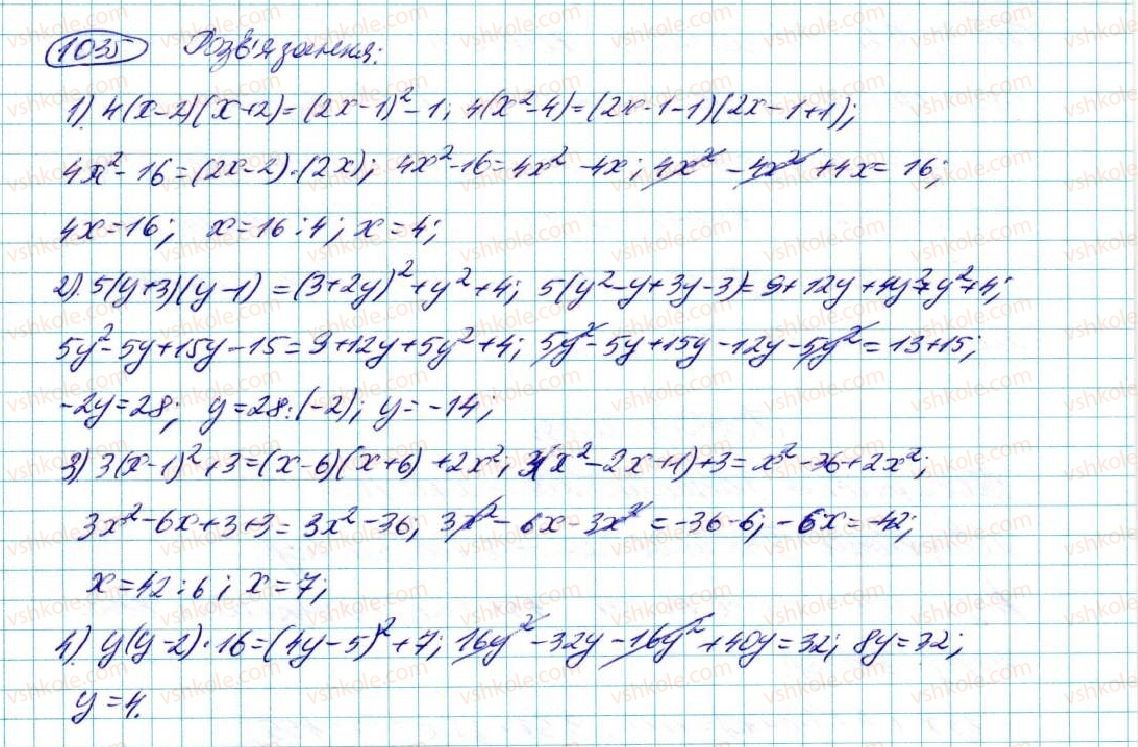 1035 Розв'язання:
1) 4(x-2)(x+2)=(2x-1)²-1; 4(x²-4)=(2x-1-1)(2x-1+1);
4x²-16=(2x-2)·(2x); 4x²-16=4x²-4x; 4x²-4x²+4x=16;
4x=16; x=16:4; x=4;
2) 5(y+3)(y-1)=(3+2y)²+y²+4; 5(y²-y+3y-3)=9+12y+4y²+y²+4;
5y²-5y+15y-15=9+12y+5y²+4; 5y²-5y+15y-12y-5y²=13+15;
-2y=28; y=28:(-2); y=-14;
3) 3(x-1)²+3=(x-6)(x+6)+2x²; 3(x²-2x+1)+3=x²-36+2x²;
3x²-6x+3+3=3x²-36; 3x²-6x-3x²=-36-6; -6x=-42;
x=42:6; x=7;
4) y(y-2)·16=(4y-5)²+7; 16y²-32y-16y²+40y=32; 8y=32;
y=4.
vshkole.com